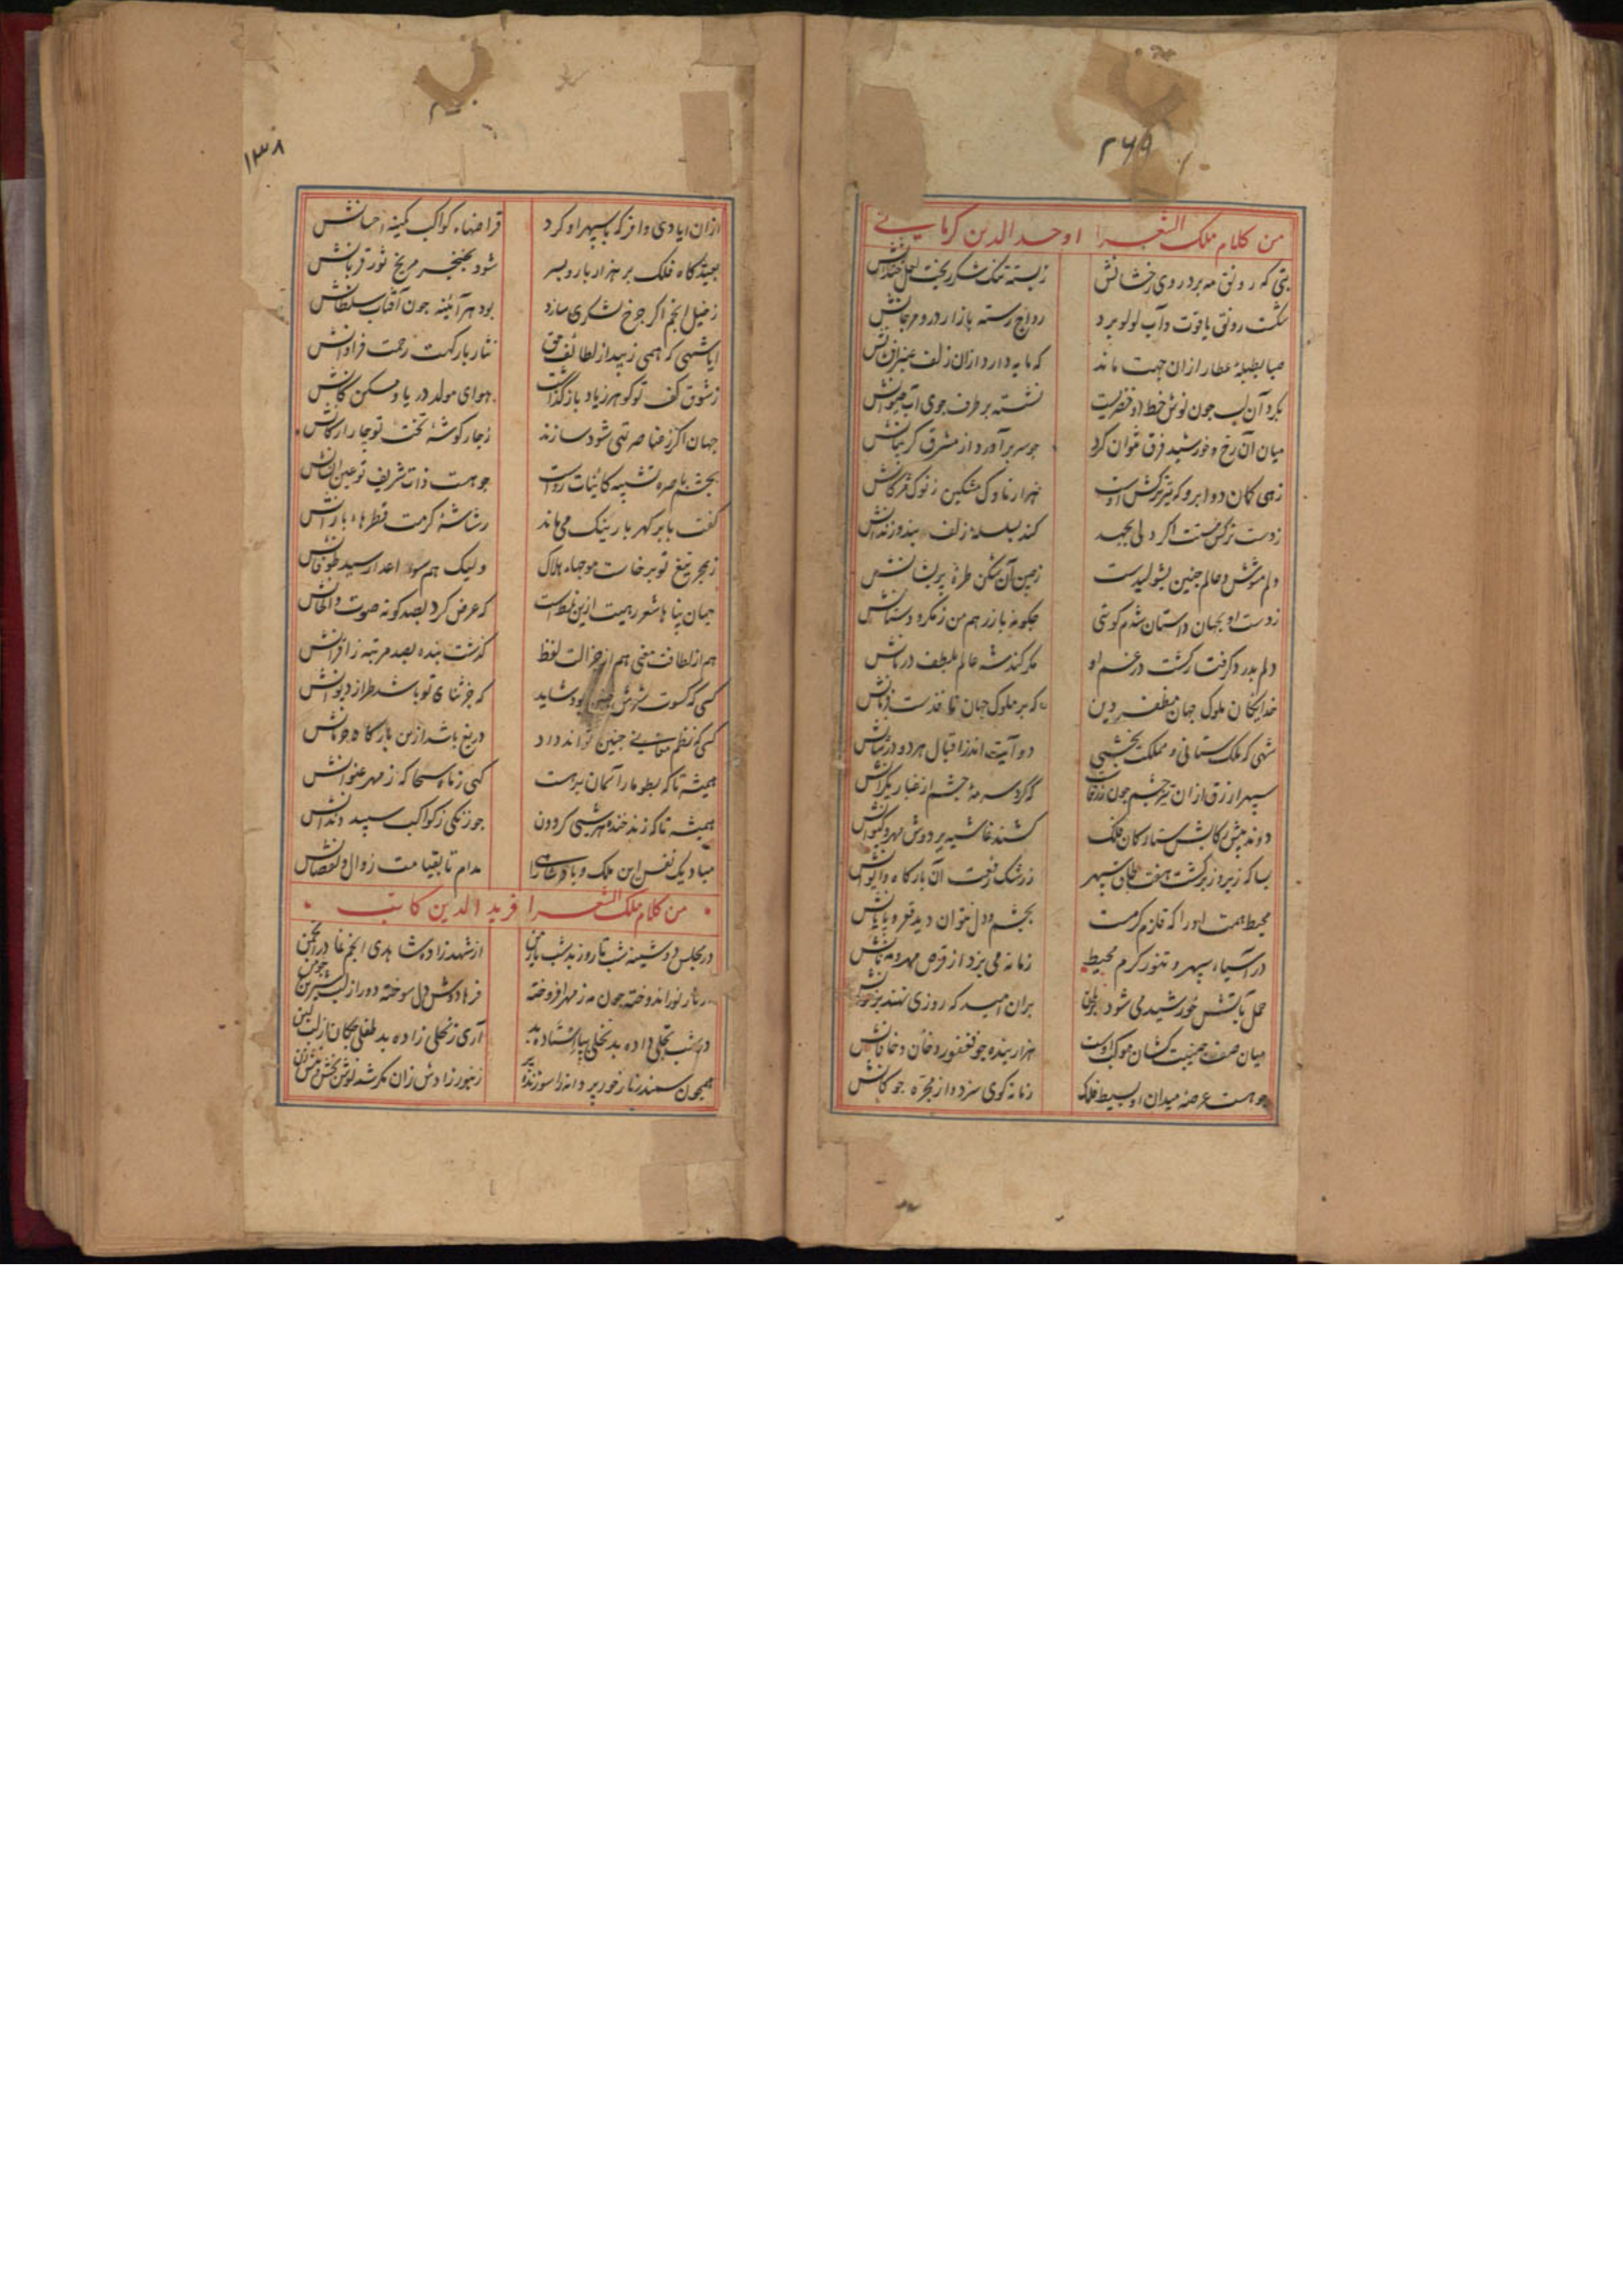 ۲۶۹
من کلام ملک الشعرا اوحد الدین کرمانی
بتی که رونق مه برد روی رخشانش زپسته تنک شکر ریخت لعل خندانش
شکست رونق یاقوت و آب لولو برد رواج رسته بازار در و مرجانش
صبا بطبلهٔ عطار ازان جهت ماند که مایه دارد ازان زلف عنبر افشانش
بکرد آن لب چون نوش خط او خضریست نشسته بر طرف جوی آب حیوانش
میان آن رخ و خورشید فرق نتوان کرد چو سر برآورد از مشرق کریبانش
زهی کمان دو ابرو که تیر ترکش اوست هزار ناوک مشکین ز نوک مژکانش
زدست نرکس مستت اکر دلی بجهد کند بسلسلهٔ زلف بند و زندانش
دلم مشوش و عالم چنین بشولیدست زچین آن شکن طرهٔ پریشانش
زدست او بجهان داستان شدم کوئی چکونه باز رهم من ز مکر و دستانش
دلم بدرد کرفتار کشت در غم او مکر کند شه عالم بلطف درمانش
خدایکان ملوک جهان مظفر دین که بر ملوک جهان نافذست فرمانش
شهی که ملک ستانی و مملکت بخشی دو آیت اندز اقبال هر دو در شانش
سپهر ازرق ازان تیز چشم چون زرقاست که کرد سرمهٔ چشم از غبار یکرانش
دوند پیش رکابش ستارکان فلک کشند غاشیه بر دوش مهر و کیوانش
بسا که زیر و زبر کشت هفت طاق سپهر زرشک رفعت آن بارکاه و ایوانش
محیط همت او را که قلزم کرمست بچشم و دل نتوان دید قعر و پایانش
در آسیاء سپهر و تنور کرم محیط زمانه می پزد از قرص مهر و مه نانش
حمل بآتش خورشید می شود بریان بران امید که روزی نهند بر خوانش
میان صف جنیبت کشان موکب اوست هزار بنده چو فغفور و خان و خاقانش
چو هست عرصهٔ میدان او بسیط فلک زمانه کوی سزد و از مجره چوکانش
۱۳۸
ازان ایادی وافر که با سپهر او کرد قراضهاء کواکب کمینه احسانش
بعیدکاه فلک بر هزار بار و بسر شود بخنجر مریخ ثور قربانش
زخیل انجم اکر چرخ لشکری سازد بود هر آئینه چون آفتاب سلطانش
ایا شهی که همی زیبد از لطائف حق نثار بارکهت رحمت فراوانش
زشوق کف تو کوهر زیاد باز کذاشت هوای مولد دریا و مسکن کانش
جهان اکر ز عناصر تهی شود سازند زچار کوشهٔ تخت تو چار ارکانش
بچشم باصره تشبیه کائنات رواست چو هست ذات شریف تو عین انسانش
کفت بابر کهر بار نیک می ماند رشاشهٔ کرمت قطرهاء بارانش
زبحر تیغ تو برخاست موجهاء هلاک ولیک هم بسوی اعدا رسید طوفانش
جهان پناها شعر رهیت ازین نمط است که عرض کرد بصد کونه صوت و الحانش
هم از لطافت معنی هم از جزالت لفظ کذشت بنده بصد مرتبه ز اقرانش
کسی که کسوت شعرش چنین بود شاید که جز ثنای تو باشد طراز دیوانش
کسی که نظم معانی چنین تواند داد دریغ باشد ازین بارکاه حرمانش
همیشه تا که بطومار آسمان برهست کهی زماه سحا که ز مهر عنوانش
همیشه تا که زند خنده هر شبی کردون چو زنکی ز کواکب سپید دندانش
مباد یک نفس این ملک و پادشاهی را مدام تا بقیامت زوال و نقصانش
من کلام ملک الشعرا فرید الدین کاتب
در مجلس دوشینه شب تا روز بد شب ازشهد زاده شاهدی انجم نما در انجمن
نور اندوخته چون مه ز مهر افروخته فرهادوش دل سوخته دور از لب شیرین
در شب تجلی داده بد نخلی بپا استاده بد آری ز نحلی زاده بد طفلی چکان از لب لبن
همچون سمندر نار خور پروانه را سوزنده پر زنبور زادش زان مکر شد نوش بخش و نیش زن